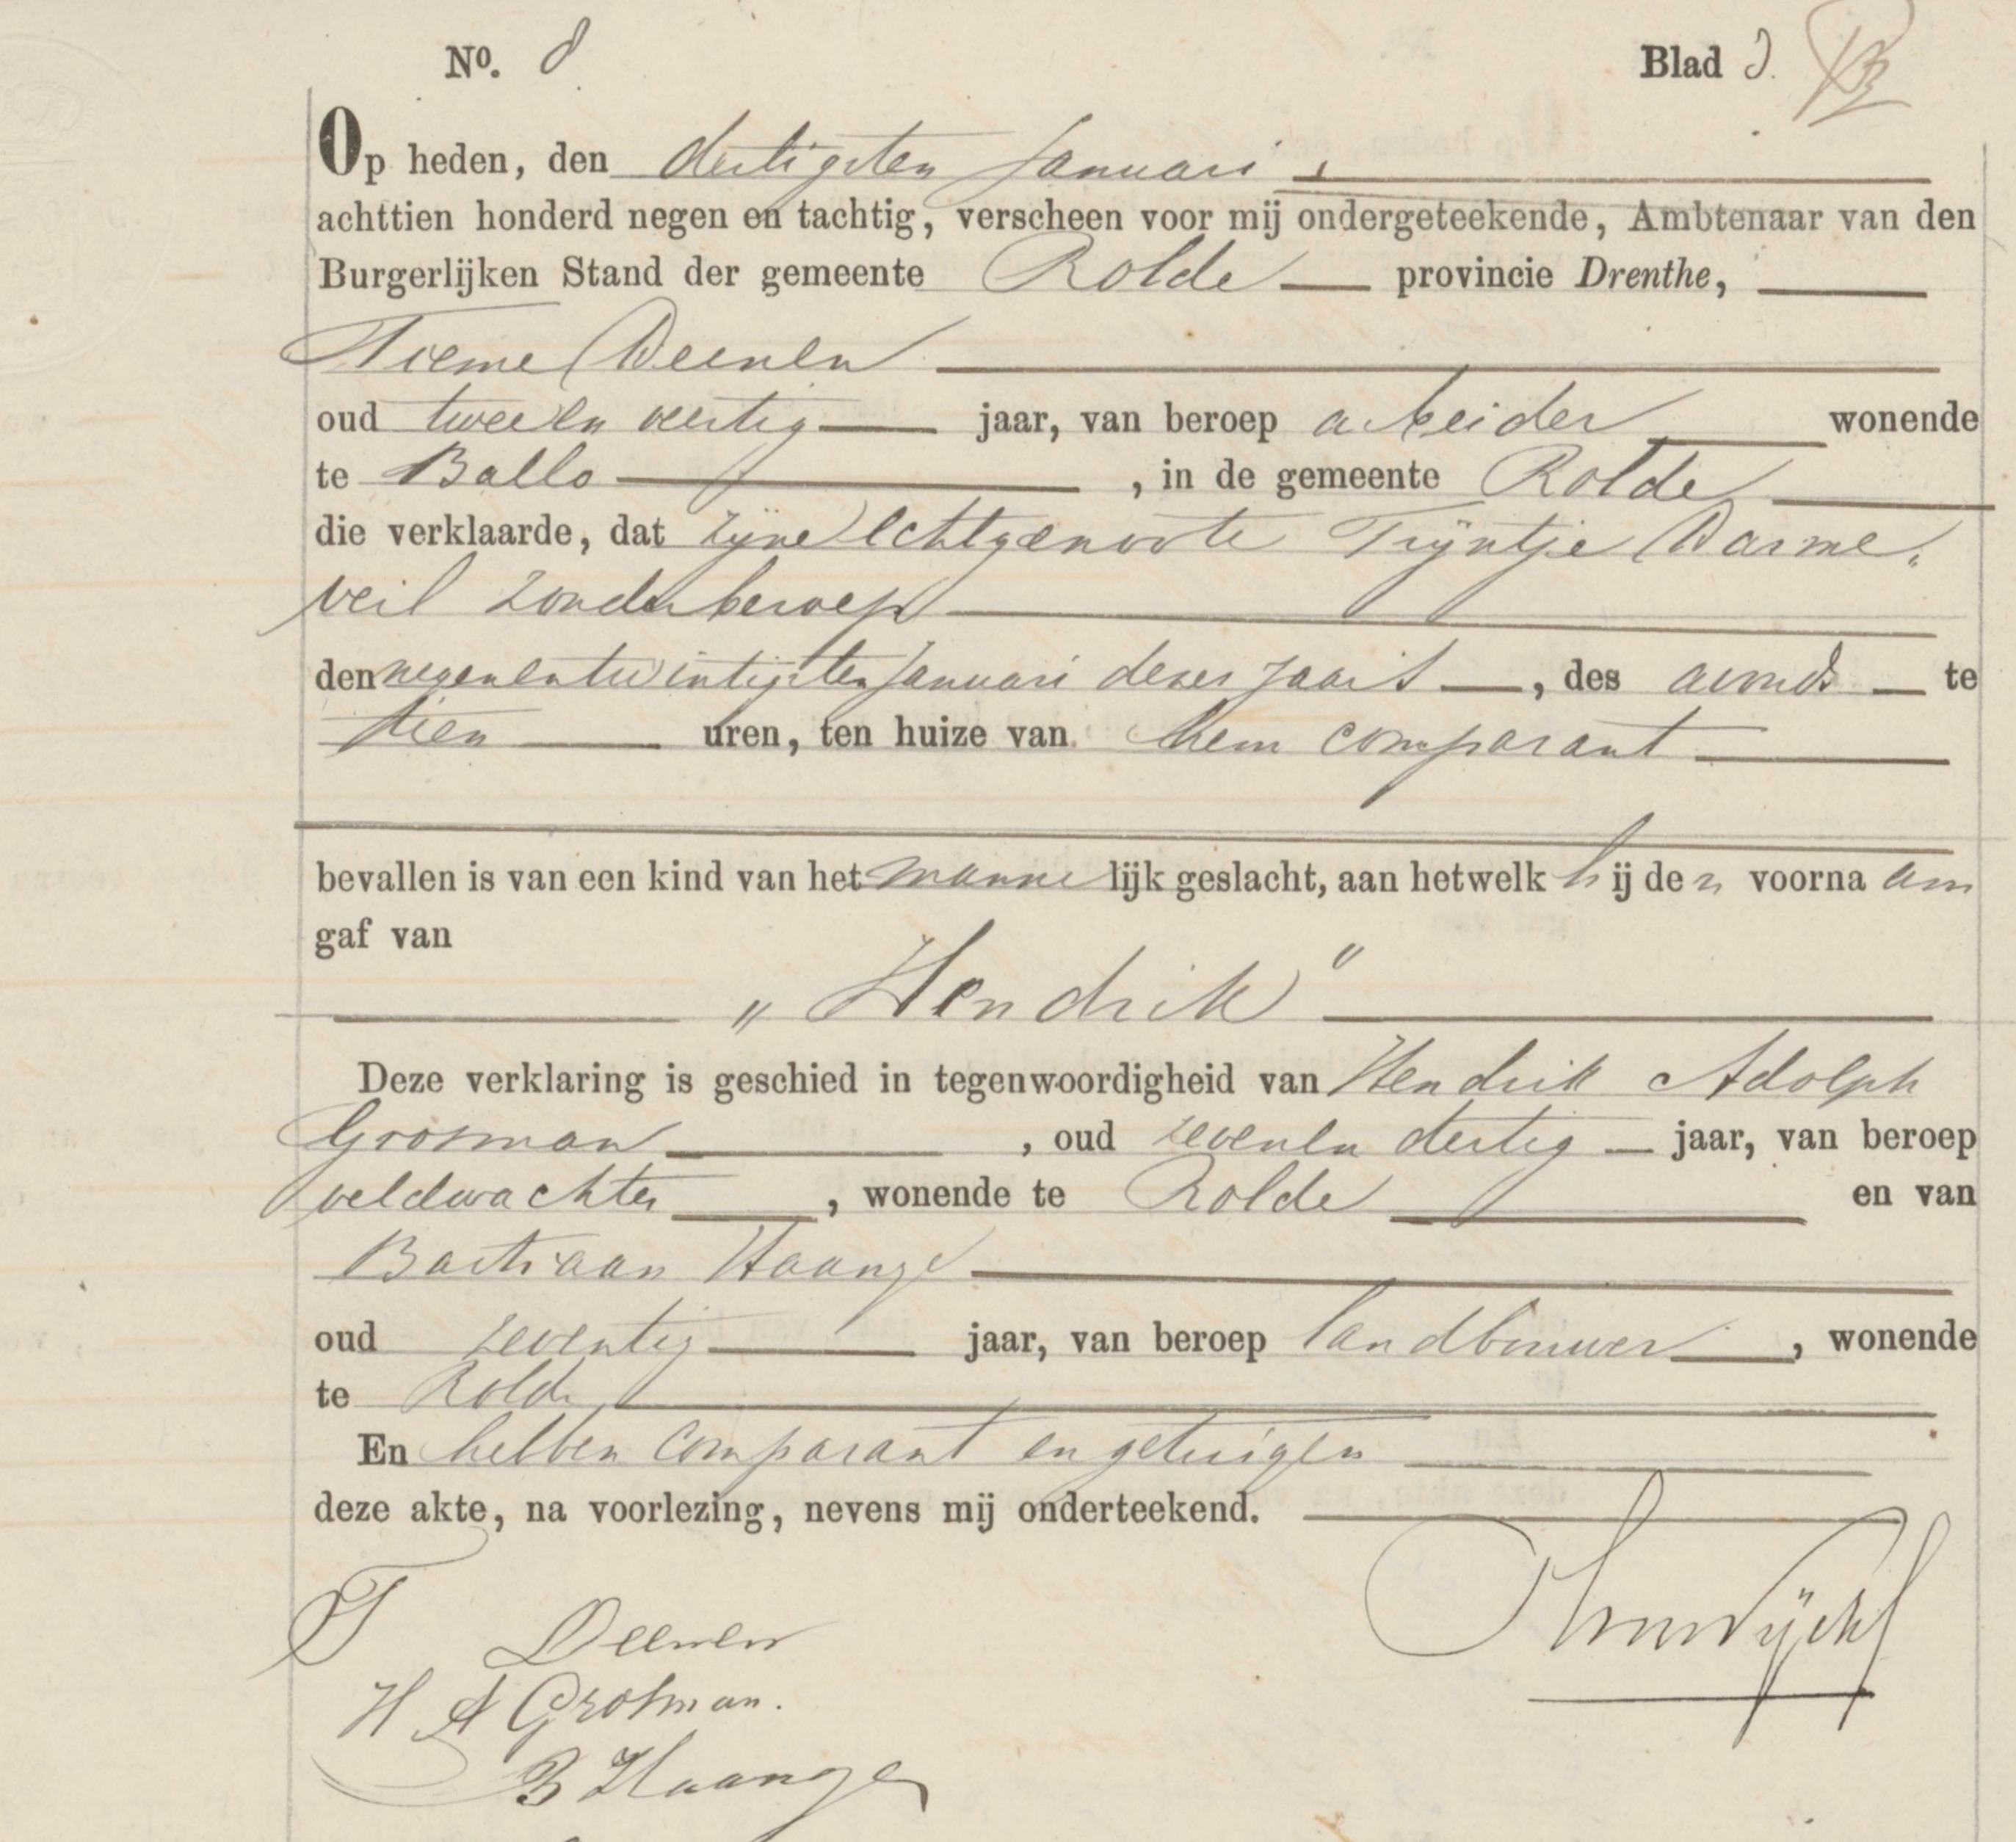 No. 8 Blad 3.
Op heden, den dertigsten Januari,
achttien honderd negen en tachtig, verscheen voor mij ondergeteekende, Ambtenaar van den
Burgerlijken Stand der gemeente Rolde provincie Drenthe,
Tieme Deenen
oud tweeen veertig jaar, van beroep arbeider wonende
te Ballo , in de gemeente Rolde
die verklaarde, dat zijne Echtgenoote Trijntje Darme„
veil zonder beroep
den negenentwintigsten Januari dezes jaars , des avonds te
tien uren, ten huize van hem comparant
bevallen is van een kind van het mannelijk geslacht, aan hetwelk hij den voornaam
gaf van
„Hendrik"
Deze verklaring is geschied in tegenwoordigheid van Hendrik Adolph
Grotman , oud zevenen dertig jaar, van beroep
veldwachter , wonende te Rolde en van
Bastiaan Haange
oud zeventig jaar, van beroep landbouwer , wonende
te Rolde
En hebben comparant en getuigen
deze akte, na voorlezing, nevens mij onderteekend.
T Deenen
H A Grotman.
B Haange